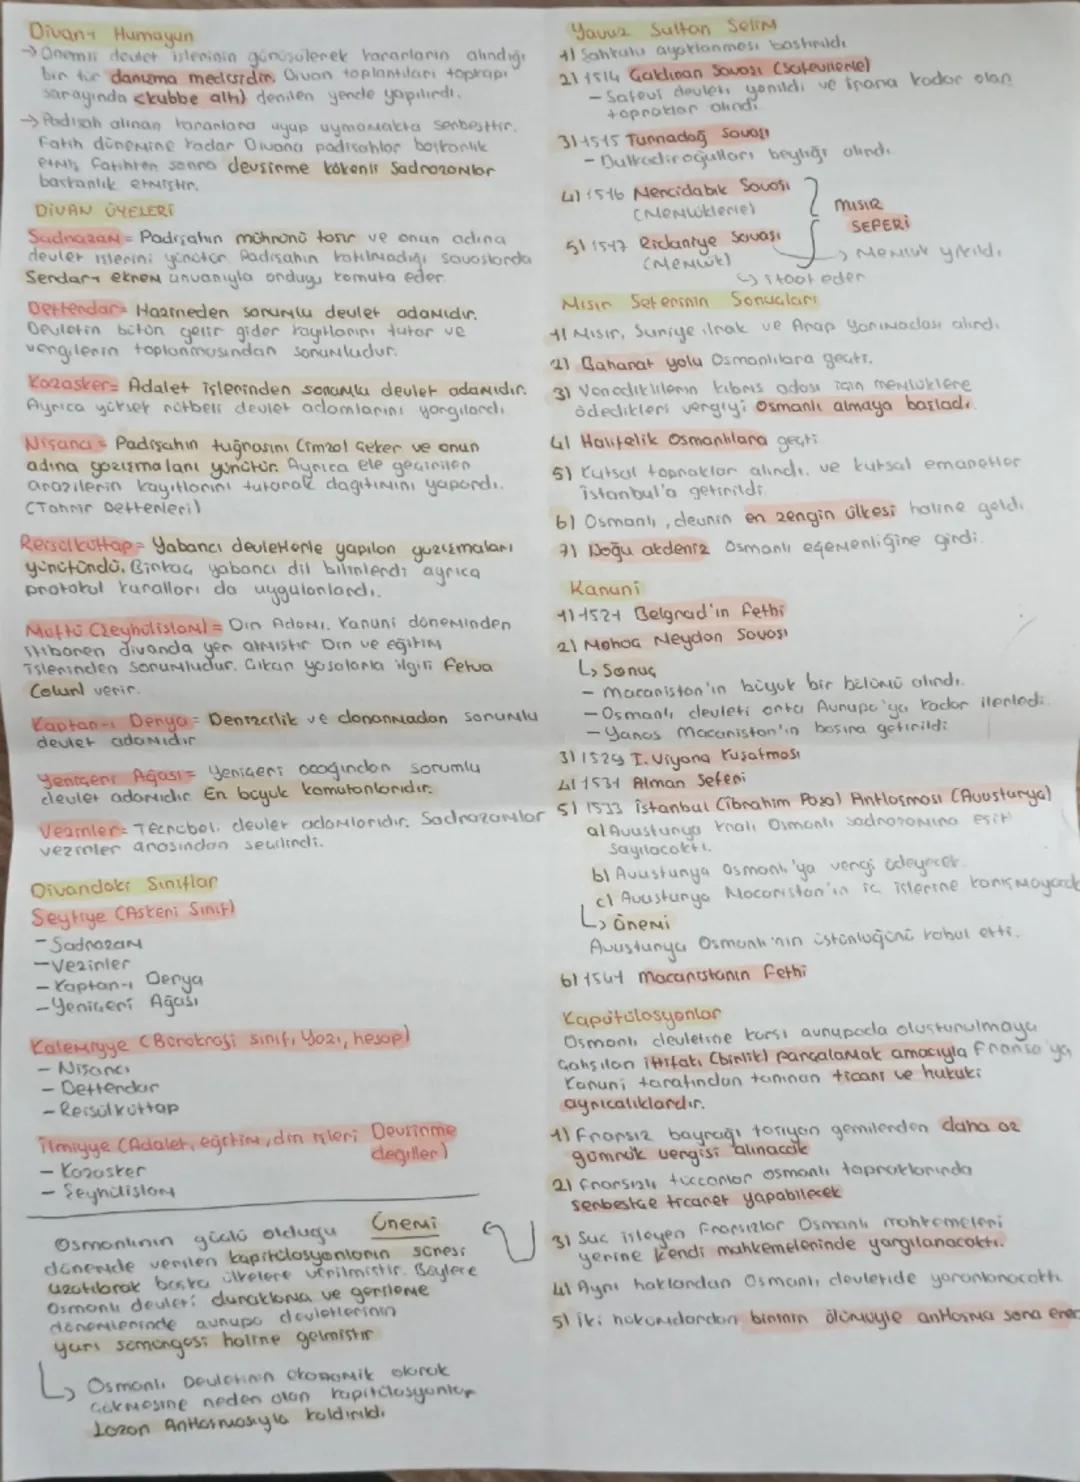 Divan-ı Humayun
→ Önemli devlet işlerinin görüşülerek kararların alındığı
bir tür danışma meclisidir. Divan toplantıları topkapı
sarayında <kubbe altı) denilen yerde yapılırdı.
→ Padişah alınan kararlara uyup uymamakta serbesttir.
Fatih dönemine kadar Divana padişahlar başkanlık
etmiş fatihten sonra devşirme kökenli Sadrazamlar
başkanlık etmiştir.
DİVAN ÜYELERİ
Sadrazam = Padişahın mührünü taşır ve onun adına
devlet işlerini yönetir. Padişahın katılmadığı savaşlarda
Serdar-ı ekrem unvanıyla orduyu komuta eder.
Defterdar = Hazineden sorumlu devlet adamıdır.
Devletin bütün gelir gider kayıtlarını tutar ve
vergilerin toplanmasından sorumludur.
Kazasker = Adalet işlerinden sorumlu devlet adamıdır.
Ayrıca yüksek rütbeli devlet adamlarını yargılardı
Nişancı = Padişahın tuğrasını (imza) çeker ve onun
adına yazışmaları yürütür. Ayrıca ele geçirilen
arazilerin kayıtlarını tutarak dağıtımını yapardı.
(Tahrir Defterleri)
Reisülküttap = Yabancı devletlerle yapılan yazışmaları
yürütürdü. Birkaç yabancı dil bilirlerdi ayrıca
protokol kuralları da uygulanlardı.
Müftü (Şeyhülislam) = Din Adamı. Kanuni döneminden
itibaren divanda yer almıştır Din ve eğitim
işlerinden sorumludur. Çıkan yasalarla ilgili Fetva
(olur) verir.
Kaptan-ı Derya = Denizcilik ve donanmadan sorumlu
devlet adamıdır
Yeniçeri Ağası = Yeniçeri ocağından sorumlu
devlet adamıdır En büyük komutanlarıdır.
Vezirler = Tecrübeli devlet adamlarıdır. Sadrazamlar
vezirler arasından seçilirdi.
Divandaki Sınıflar
Seyfiye (Askeri Sınıf)
- Sadrazam
- Vezirler
- Kaptan-ı Derya
- Yeniçeri Ağası
Kalemiyye (Bürokrasi sınıfı, Yazı, hesap)
- Nişancı
- Defterdar
- Reisülküttap
İlmiyye (Adalet, eğitim, din işleri Devşirme
değiller)
- Kazasker
- Şeyhülislam
Önemi
Osmanlının güçlü olduğu
dönemde verilen kapitülasyonların süresi
uzatılarak başka ülkelere verilmiştir. Böylece
Osmanlı devleti duraklama ve gerileme
dönemlerinde avrupa devletlerinin
yarı sömürgesi haline gelmiştir
↳ Osmanlı Devletinin ekonomik olarak
çökmesine neden olan kapitülasyonlar
Lozan Antlaşmasıyla kaldırıldı
Yavuz Sultan Selim
1) Şahkulu ayaklanması bastırıldı
2) 1514 Çaldıran Savaşı (Safevilerle)
- Safevi devleti yenildi ve İrana kadar olan
topraklar alındı.
3) 1515 Turnadağ Savaşı
- Dulkadiroğulları beyliği alındı.
4) 1516 Mercidabık Savaşı
(Memlüklerle)
5) 1517 Ridaniye Savaşı
(Memlük)
MISIR
SEFERİ
↳ Memlük yıkıldı
↳ itaat eder
Mısır Seferinin Sonuçları
1) Mısır, Suriye, Irak ve Arap Yarımadası alındı
2) Baharat yolu Osmanlılara geçti.
3) Venediklilerin kıbrıs adası için memlüklere
ödedikleri vergiyi Osmanlı almaya başladı.
4) Halifelik Osmanlılara geçti
5) Kutsal topraklar alındı. ve kutsal emanetler
İstanbul'a getirildi
6) Osmanlı, devrin en zengin ülkesi haline geldi
7) Doğu akdeniz Osmanlı egemenliğine girdi.
Kanuni
1) 1521 Belgrad'ın Fethi
2) Mohaç Meydan Savaşı
↳ Sonuç
- Macaristan'ın büyük bir bölümü alındı.
- Osmanlı devleti orta Avrupa'ya kadar ilerledi.
- Yanoş Macaristan'ın başına getirildi
3) 1529 I. Viyana Kuşatması
4) 1531 Alman Seferi
5) 1533 İstanbul (İbrahim Paşa) Antlaşması (Avusturya)
a) Avusturya kralı Osmanlı sadrazamına eşit
sayılacaktı.
b) Avusturya Osmanlı'ya vergi ödeyecek.
c) Avusturya Macaristan'ın iç işlerine karışmayacak
↳ Önemi
Avusturya Osmanlı'nın üstünlüğünü kabul etti.
6) 1541 Macaristanın Fethi
Kapütülasyonlar
Osmanlı devletine karşı avrupada oluşturulmaya
çalışılan ittifakı (birlik) parçalamak amacıyla Fransa'ya
Kanuni tarafından tanınan ticari ve hukuki
ayrıcalıklardır.
1) Fransız bayrağı taşıyan gemilerden daha az
gümrük vergisi alınacak
2) Fransızlı tüccarlar osmanlı topraklarında
serbestçe ticaret yapabilecek
3) Suç işleyen Fransızlar Osmanlı mahkemeleri
yerine kendi mahkemelerinde yargılanacaktı.
4) Aynı haklardan Osmanlı devletide yararlanacaktı
5) İki hükümdardan birinin ölümüyle antlaşma sona erer